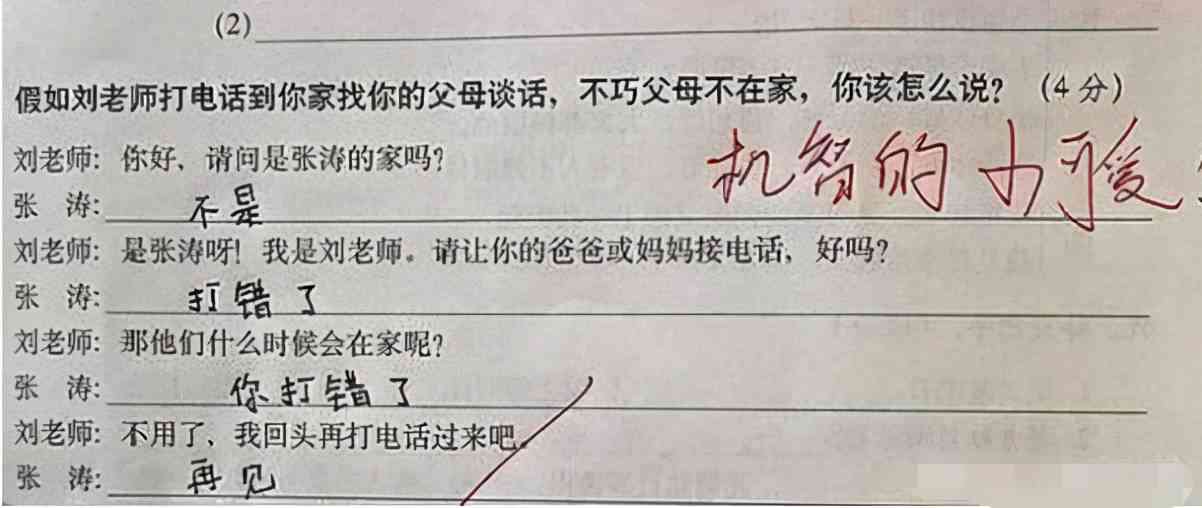 (2)
假如刘老师打电话到你家找你的父母谈话，不巧父母不在家，你该怎么说？（4 分）
刘老师：你好，请问是张涛的家吗？
机智的小可爱！
张 涛：不是
刘老师：是张涛呀！我是刘老师。请让你的爸爸或妈妈接电话，好吗？
张 涛：打错了
刘老师：那他们什么时候会在家呢？
张 涛：你打错了
刘老师：不用了，我回头再打电话过来吧。
张 涛：再见